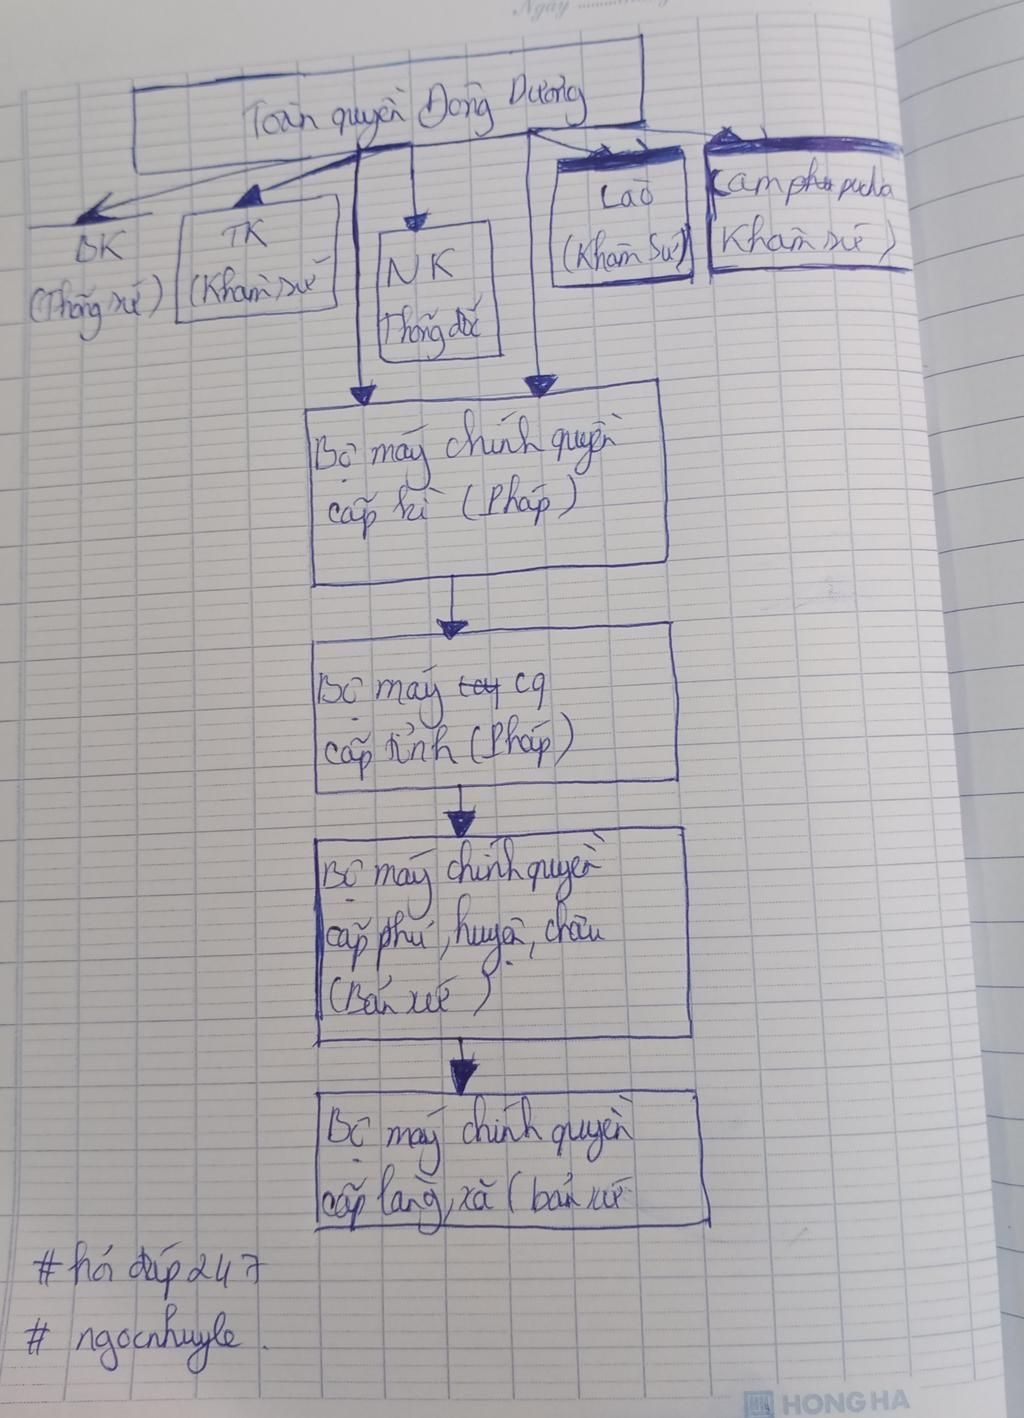 Ngày
Toàn quyền Đông Dương
BK
(Thống sứ)
TK
(Khâm sứ)
NK
Thống đốc
Lào
(Khâm sứ)
Campuchia
Khâm sứ)
Bộ máy chính quyền
cấp kì (Pháp)
Bộ máy cq
cấp tỉnh (Pháp)
Bộ máy chính quyền
cấp phủ, huyện, châu
(Bản xứ)
Bộ máy chính quyền
cấp làng, xã (bản xứ
# hỏi đáp 247
# ngocnhuyle.
HONG HA